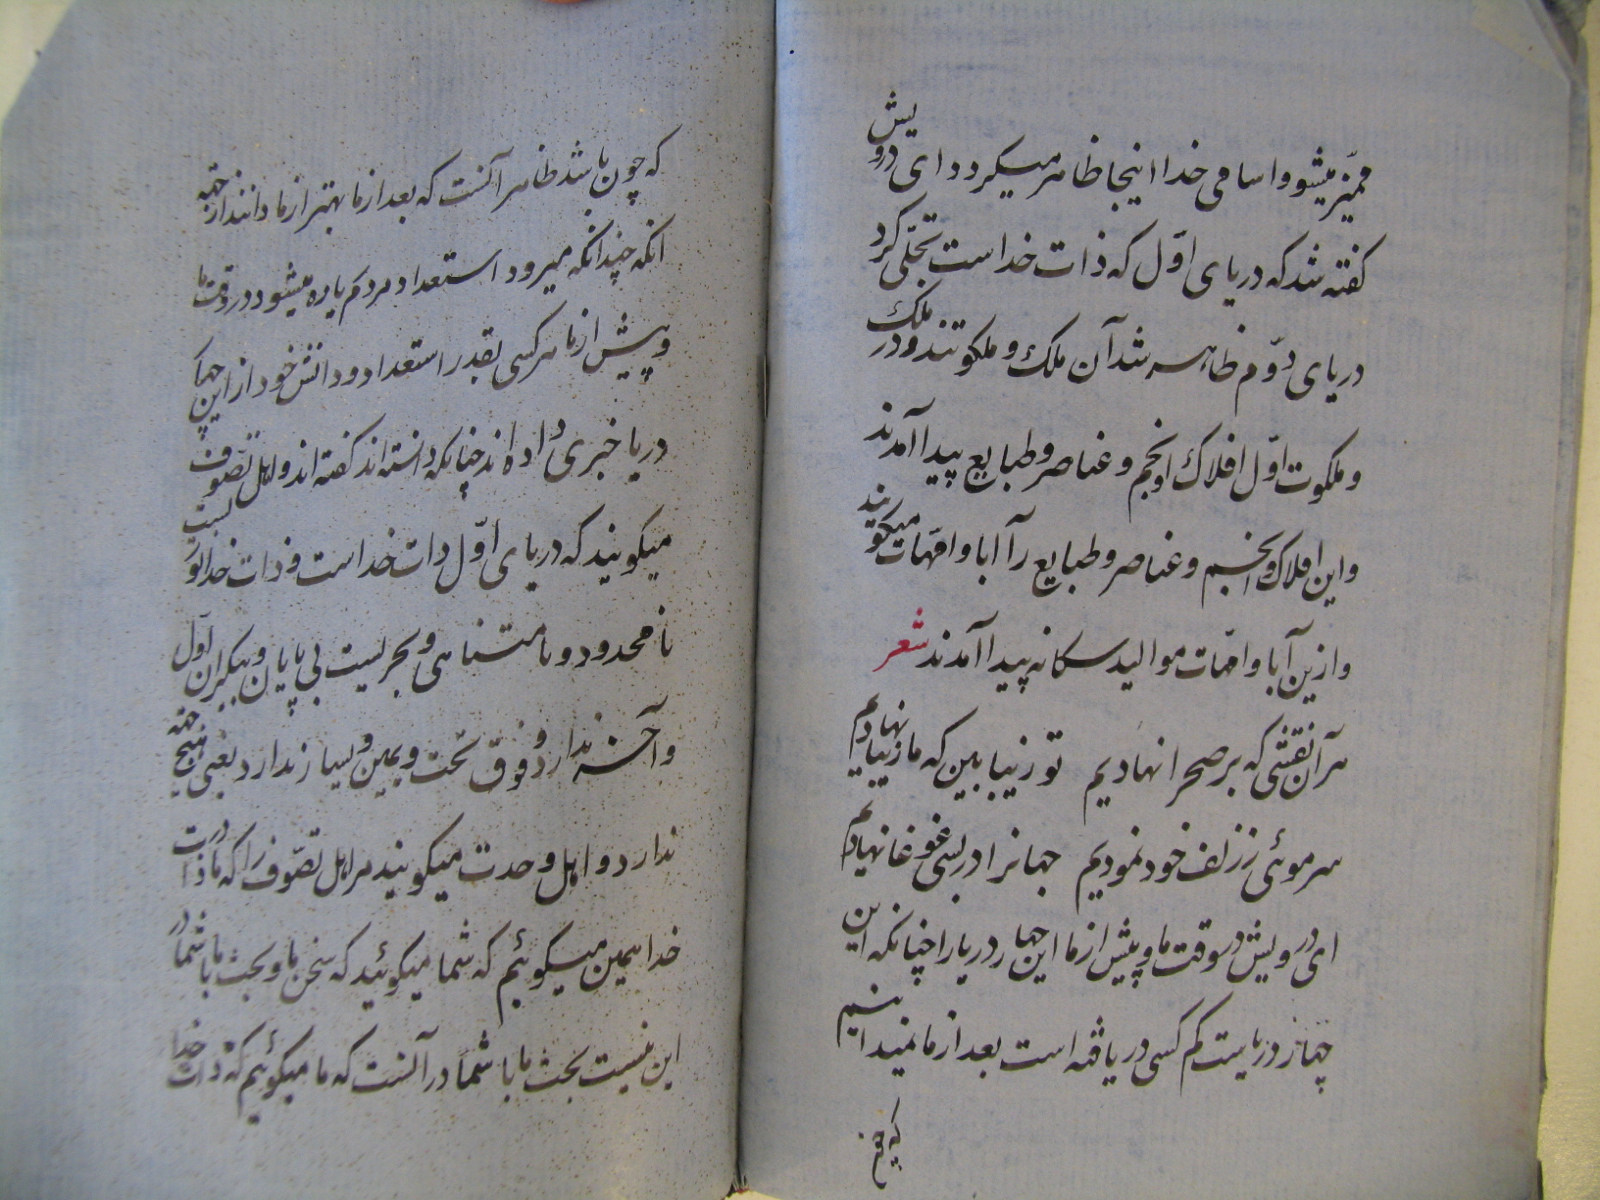 ممیّز میشود و اسامی خدا اینجا ظاهر میکردد ای درویش
کفته شد که دریای اوّل که ذات خداست تجلّی کرد
دریای دوّم ظاهر شد آن ملک و ملکوتند و در ملک
و ملکوت اوّل افلاک و انجم و عناصر و طبایع پیدا آمدند
و این افلاک و انجم و عناصر و طبایع را آبا و امّهات میکویند
و ازین آبا و امّهات موالید سکانه پیدا آمدند شعر
هر آن نقشی که بر صحرا نهادیم تو زیبا بین که ما زیبا نهادیم
سر موئی ز زلف خود نمودیم جهانرا در بسی غوغا نهادیم
ای درویش در وقت ما و پیش از ما این چهار دریا را چنانکه این
چهار دریاست کم کسی دریافته است بعد از ما نمیدانیم
که چون
که چون باشد ظاهر آنست که بعد از ما بهتر از ما دانند از جهته
انکه چندانکه میرود استعداد مردم یاره میشود در وقت ما
و پیش از ما هر کسی بقدر استعداد و دانش خود از این چهار
دریا خبری داده اند چنانکه دانسته اند کفته اند و اهل تصوّف
میکویند که دریای اوّل ذات خداست و ذات خدا نوریست
نامحدود و نامتناهی و بحریست بی پایان و بیکران اوّل
و آخر ندارد و فوق و تحت و یمین و یسار ندارد یعنی هیچ جهته
ندارد و اهل وحدت میکویند مر اهل تصوّف را که ما در ذات
خدا همین میکوئیم که شما میکوئید که سخن ما و بحث ما با شما در
این نیست بحث ما با شما در آنست که ما میکوئیم که ذات خدا